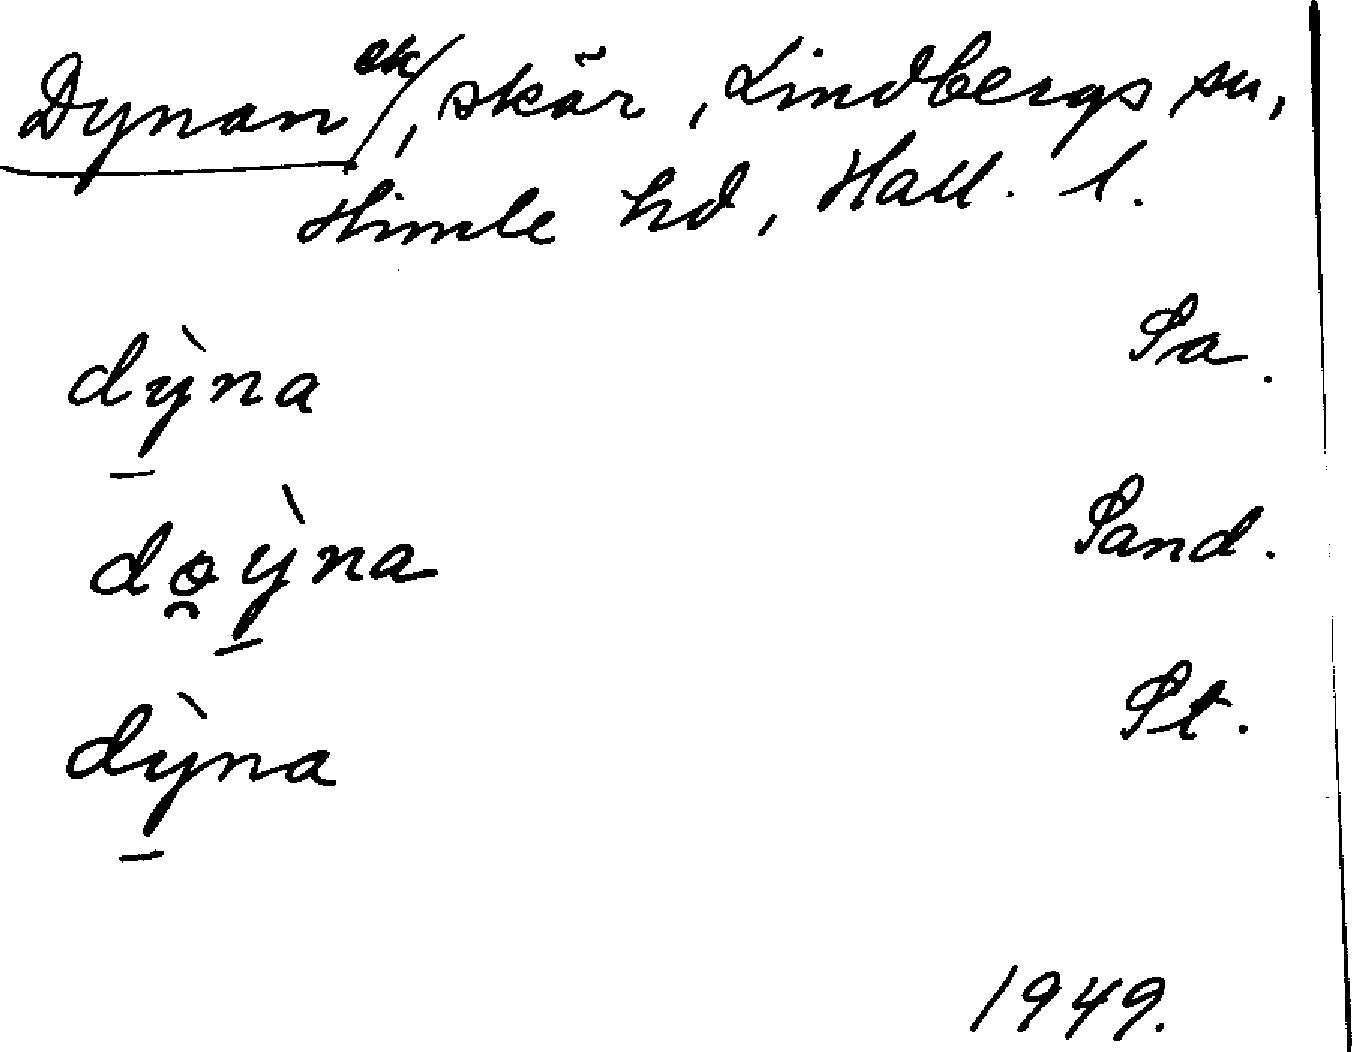 Dynan ek/, skär, Lindbergs sn,
Himle hd, Hall. l.
dỳ̠na Sa.
dø̯ỳ̠na Sand.
dỳ̠na St.
1949.